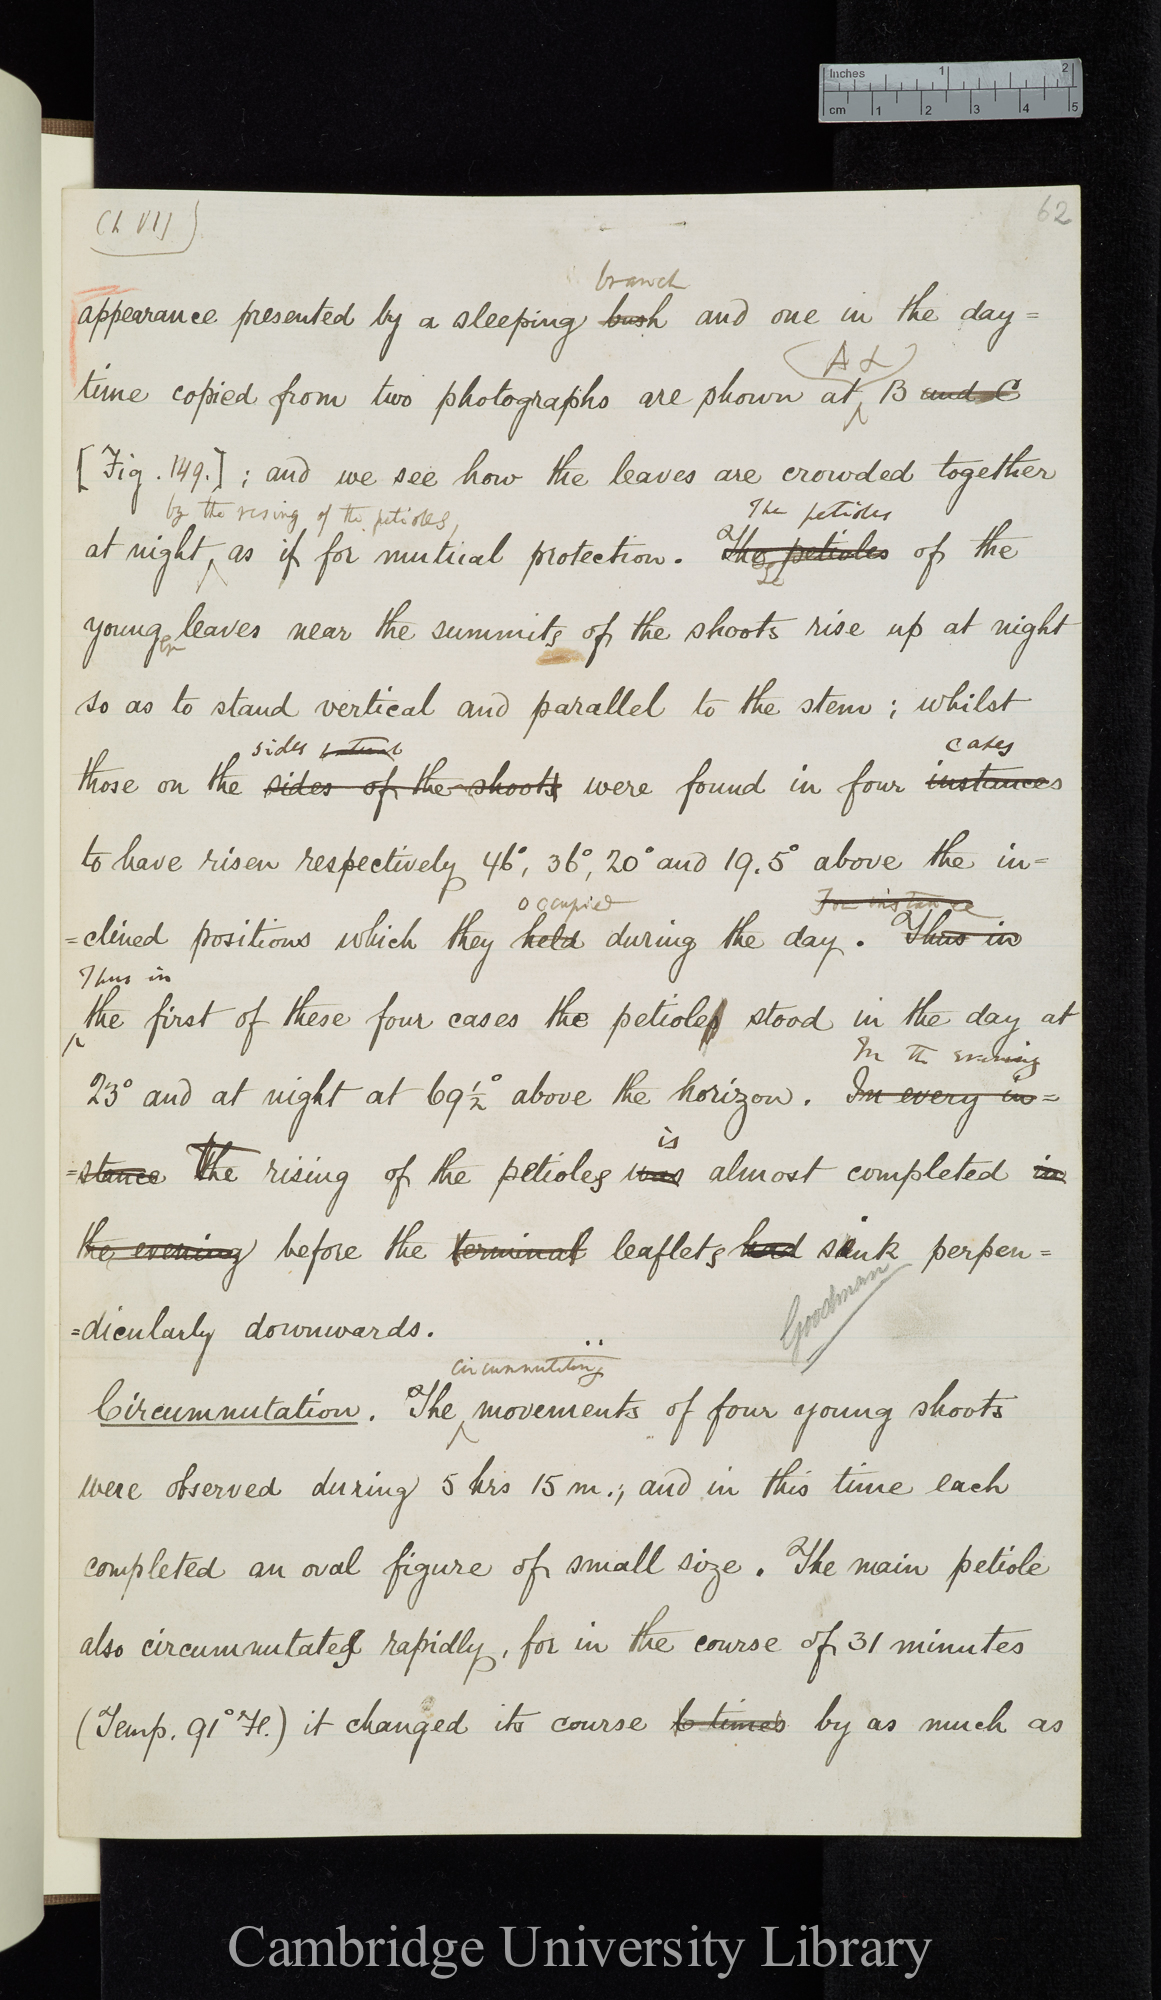 Inches 1 2
cm 1 2 3 4 5
(Ch VII)
62
branch
appearance presented by a sleeping bush and one in the day=
A &
time copied from two photographs are shown at B and C
[Fig. 149.]; and we see how the leaves are crowded together
by the rising of the petioles, The petioles
at night, as if for mutual protection. The petioles of the
younger leaves near the summits of the shoots rise up at night
so as to stand vertical and parallel to the stem; whilst
sides cases
those on the sides of the shoots were found in four instances
to have risen respectively 46°, 36°, 20° and 19.5° above the in=
occupied For instance
=clined positions which they held during the day. Thus in
Thus in
the first of these four cases the petioles stood in the day at
In the evening
23° and at night at 69 1/2° above the horizon. In every in=
is
=stance The rising of the petioles was almost completed in
the evening before the terminal leaflets had sink perpen=
Goodman
=dicularly downwards.
circumnutating
Circumnutation. The movements of four young shoots
were observed during 5 hrs 15 m.; and in this time each
completed an oval figure of small size. The main petiole
also circumnutates rapidly, for in the course of 31 minutes
(Temp. 91° F.) it changed its course 6 times by as much as
Cambridge University Library